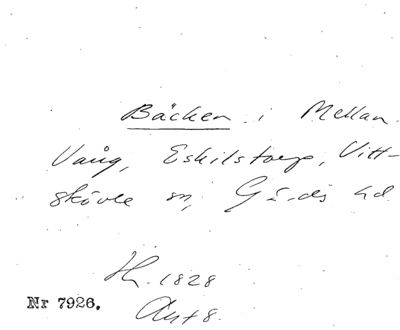 Bäcken i Mellan
Vång, Eskilstorp, Vitt-
skövle sn, Gärds hd
H. 1828
Akt 8.
Nr 7926.